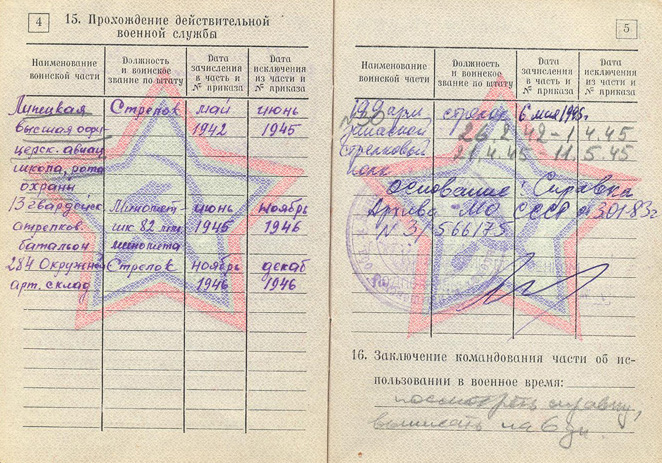 4
15. Прохождение действительной
военной службы
Наименование воинской части
Должность и воинское звание по штату
Дата зачисления в часть и № приказа
Дата исключения из части и № приказа
Липецкая Стрелок май июнь
высшая офи- 1942 1945
церск. авиац
школа, рота
охраны
13 гвардейск Миномет- июнь ноябрь
стрелков. чик 82 мм 1945 1946
батальон миномета
284 Окружной Стрелок ноябрь декаб
арт. склад 1946 1946
5
Наименование воинской части
Должность и воинское звание по штату
Дата зачисления в часть и № приказа
Дата исключения из части и № приказа
стрелок 6 мая 1945г
26.2.42-1.4.45
стрелковый 21.4.45-11.5.45
полк
Основание: Справка
Архива МО СССР от 30.1.83г
N 3/566175
16. Заключение командования части об ис-
пользовании в военное время:
посмотреть справку,
выписать на 6